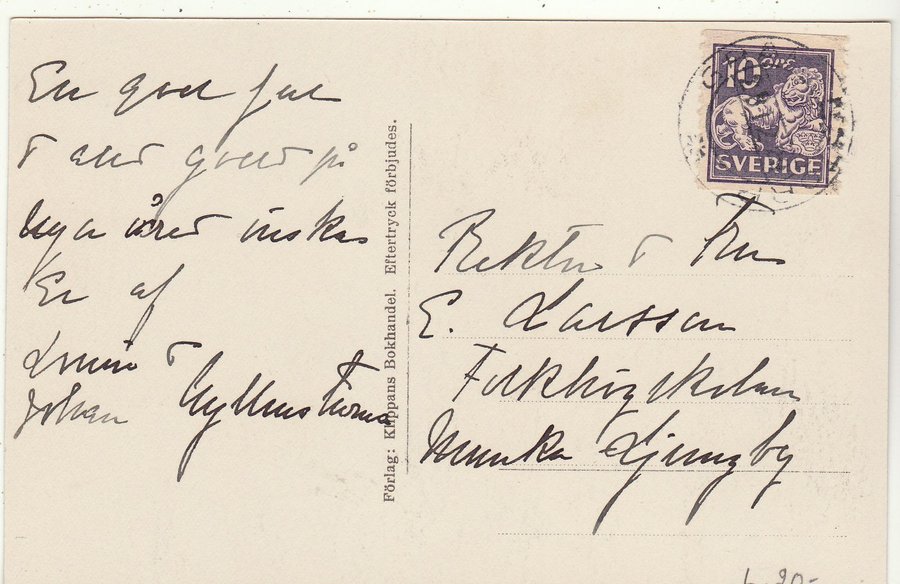 En god jul
o allt godt på
Nya året önskas
Er af
o
Johan Gyllenstierna
Förlag: Klippans Bokhandel. Eftertryck förbjudes.
10 ÖRE
SVERIGE
Rektor o Fru
E. Larsson
Folkhögskolan
Munka Ljungby